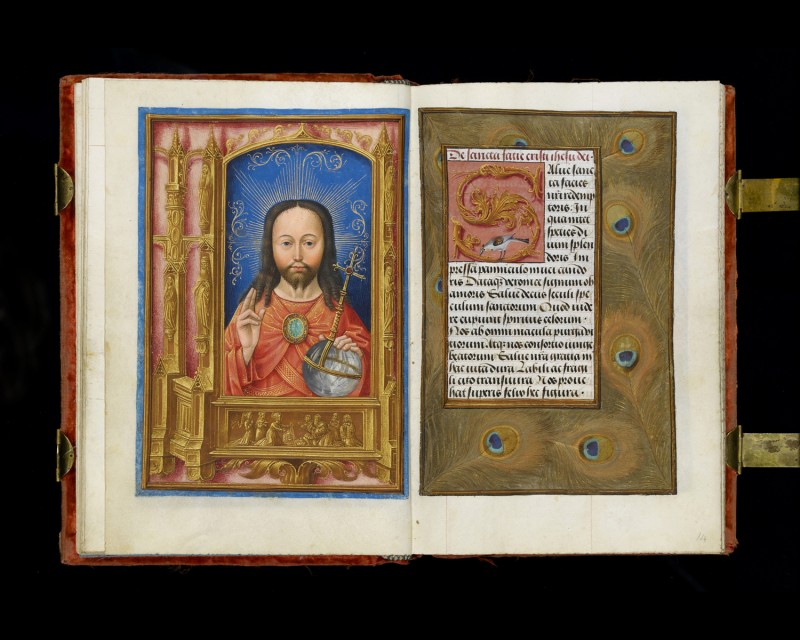 De sancta facie cristi ihesu det.
Alue sanc
ta facies
nr̃i redemp
toris. In
qua nitet
species di
uini splen
doris Im
pressa panniculo niuei cando
ris Dataq; veronice signum ob
amoris Salue decus seculi spe
culum sanctorum Quod uide
re cupiunt spiritus celorum.
Nos ab omni macula purga vi
ciorum Atq; nos consortio iunge
beatorum Salue nr̃a gratia in
hac uita dura Labili ac fragi
li cito transitura Nos proue
hat superis felix hec figura.